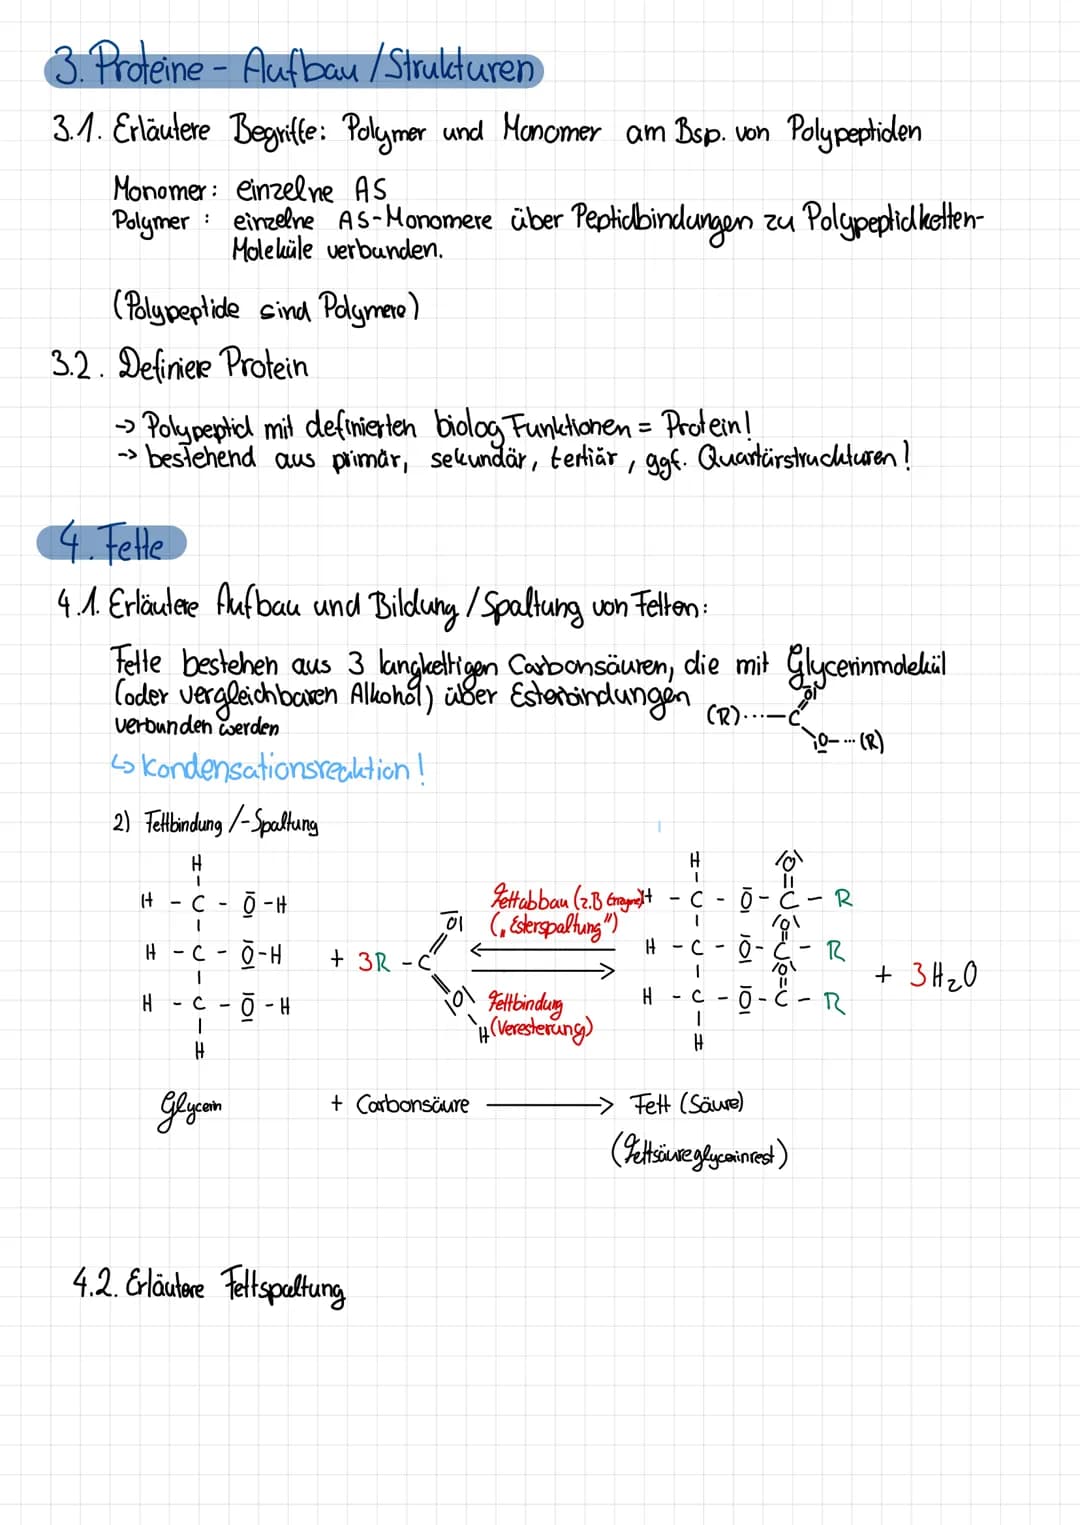 3. Proteine - Aufbau / Strukturen
3.1. Erläutere Begriffe: Polymer und Monomer am Bsp. von Polypeptiden
Monomer: einzelne AS
Polymer : einzelne AS-Monomere über Peptidbindungen zu Polypeptidketten-
Moleküle verbunden.
(Polypeptide sind Polymere)
3.2. Definiere Protein
-> Polypeptid mit definierten biolog Funktionen = Protein!
-> bestehend aus primär, sekundär, tertiär, ggf. Quartärstruckturen!
4. Fette
4.1. Erläutere Aufbau und Bildung / Spaltung von Fetten:
Fette bestehen aus 3 langkettigen Carbonsäuren, die mit Glycerinmolekül
(oder vergleichbaren Alkohol) über Esterbindungen
verbunden werden
(R)···-C
Ō|
|O-···(R)
↳ Kondensationsreaktion!
2) Fettbindung /-Spaltung
H
H - C - Ō - H
H - C - Ō - H
H - C - Ō - H
H
+ 3R - C
Ō|
|O\
H
Fettabbau (z.B Enzyme)
(„Esterspaltung")
Fettbindung
(Veresterung)
H |O|
H - C - Ō - C - R
|O|
H - C - Ō - C - R
|O|
H - C - Ō - C - R
H
+ 3H₂O
Glycerin + Carbonsäure -> Fett (Säure)
(Fettsäureglycerinrest)
4.2. Erläutere Fettspaltung